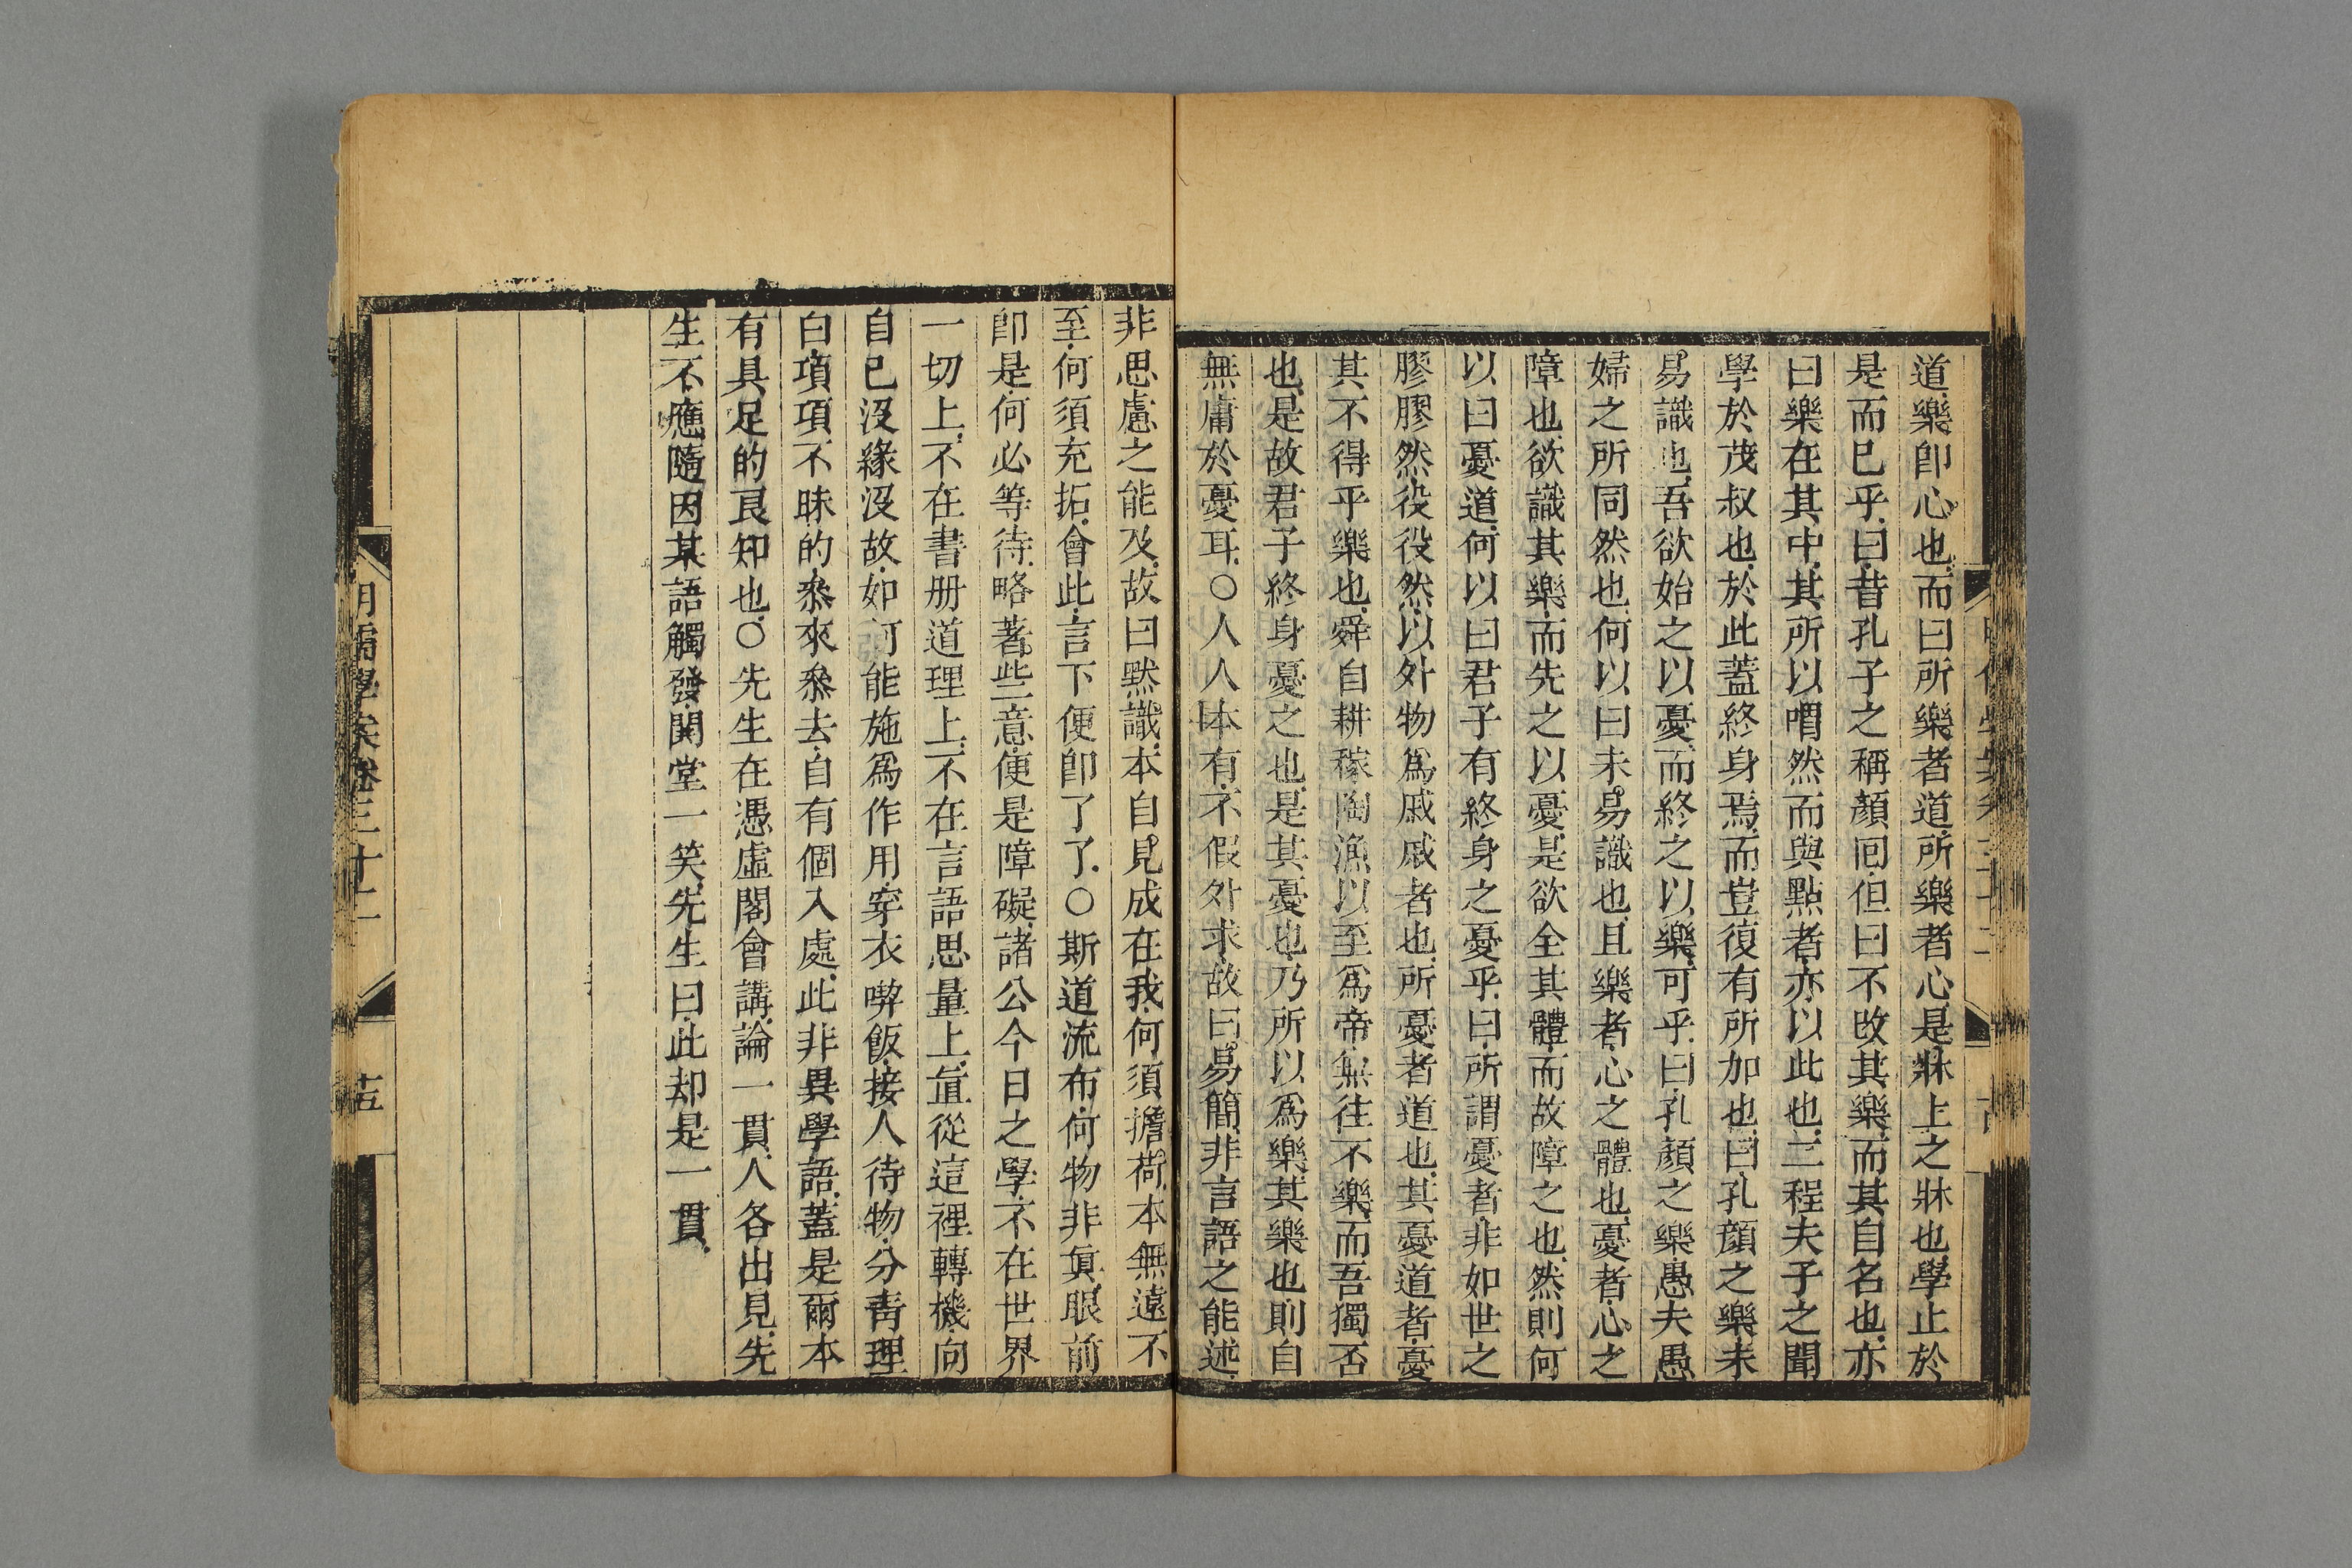 道樂卽心也而曰所樂者道所樂者心是牀上之牀也學止於
是而已乎曰昔孔子之稱顏囘但曰不改其樂而其自名也亦
曰樂在其中其所以喟然而與點者亦以此也二程夫子之聞
學於茂叔也於此蓋終身焉而豈復有所加也曰孔顏之樂未
易識也吾欲始之以憂而終之以樂可乎曰孔顏之樂愚夫愚
婦之所同然也何以曰未易識也且樂者心之體也憂者心之
障也欲識其樂而先之以憂是欲全其體而故障之也然則何
以曰憂道何以曰君子有終身之憂乎曰所謂憂者非如世之
膠膠然役役然以外物爲戚戚者也所憂者道也其憂道者憂
其不得乎樂也舜自耕稼陶漁以至爲帝無往不樂而吾獨否
也是故君子終身憂之也是其憂也乃所以爲樂其樂也則自
無庸於憂耳○人人本有不假外求故曰易簡非言語之能述
非思慮之能及故曰默識本自見成在我何須擔荷本無遠不
至何須充拓會此言下便卽了了○斯道流布何物非眞眼前
卽是何必等待略著些意便是障礙諸公今日之學不在世界
一切上不在書册道理上不在言語思量上直從這裡轉機向
自已沒緣沒故如何能施爲作用穿衣喫飯接人待物分靑理
白項項不昧的叅來叅去自有個入處此非異學語蓋是爾本
有具足的良知也○先生在憑虛閣會講論一貫人各出見先
生不應隨因某語觸發閧堂一笑先生曰此却是一貫
明儒學案卷三十二
十五